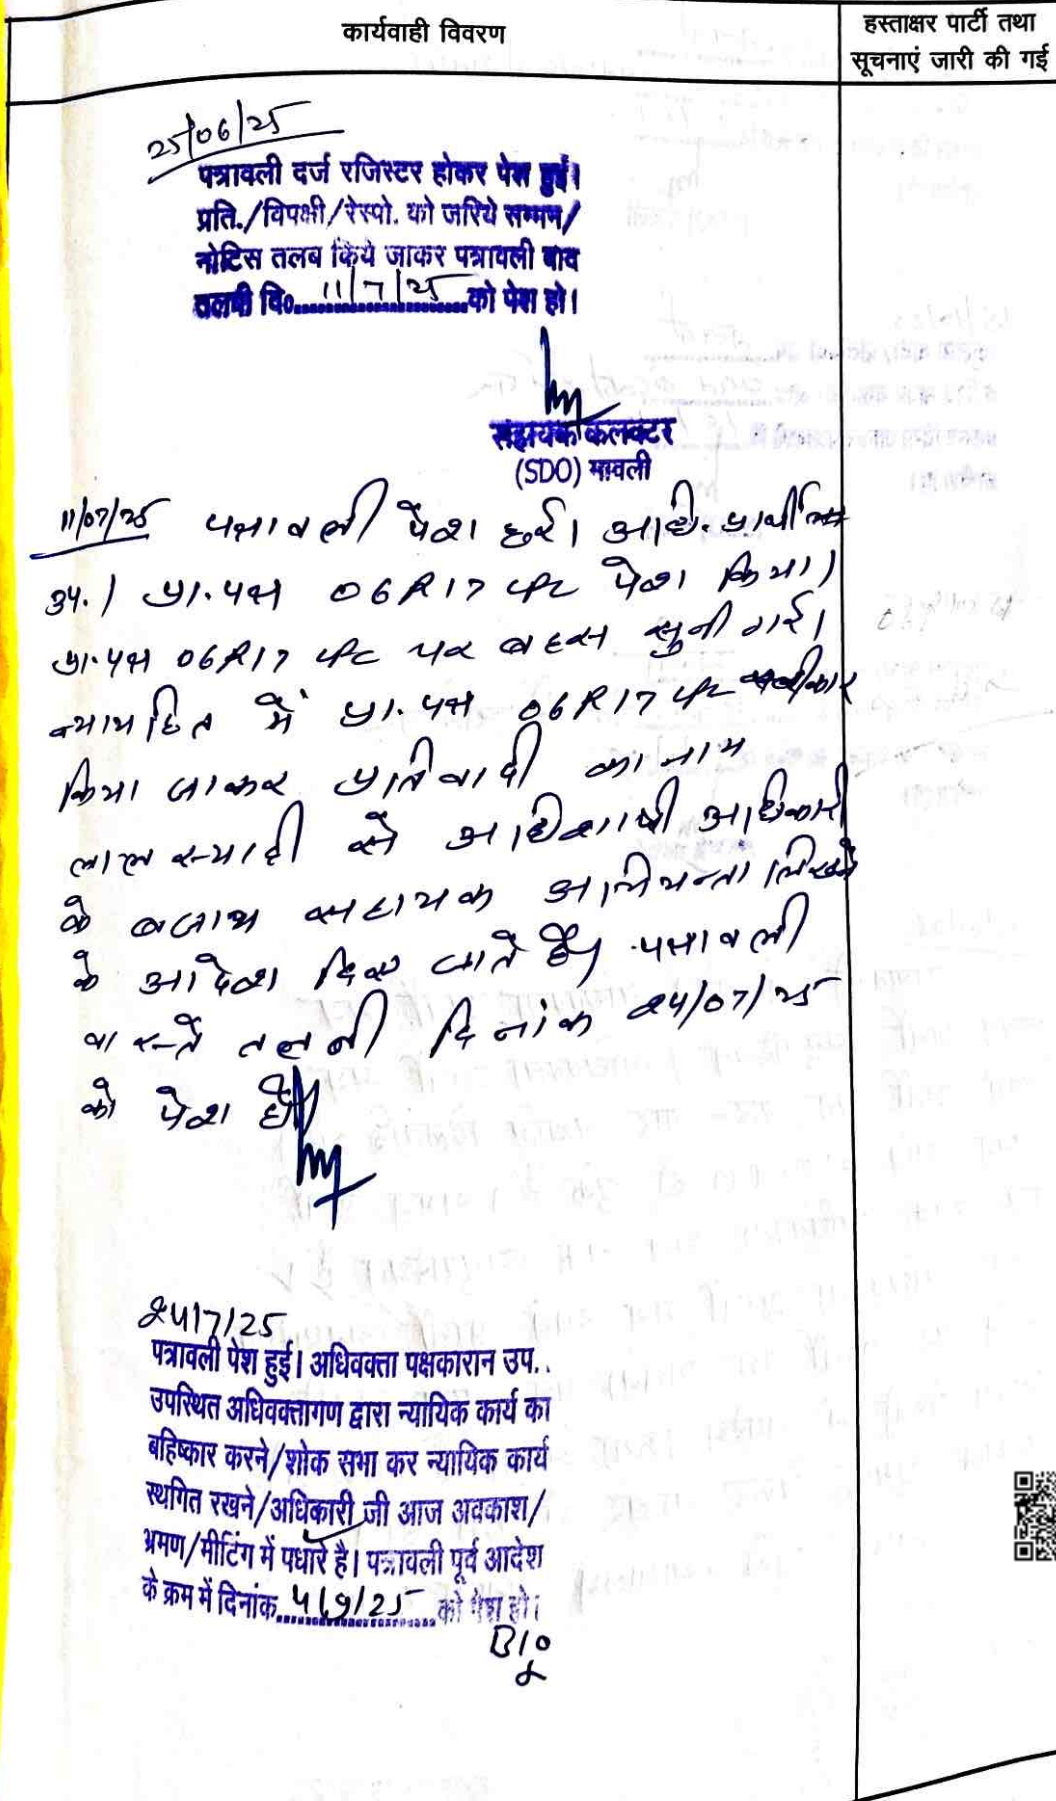 कार्यवाही विवरण
हस्ताक्षर पार्टी तथा
सूचनाएं जारी की गई
25/06/25
पत्रावली दर्ज रजिस्टर होकर पेश हुई।
प्रति./विपक्षी/रेस्पो. को जरिये सम्मन/
नोटिस तलब किये जाकर पत्रावली बाद
तलबी दि०..... 11/7/25 .....को पेश हो।
सहायक कलक्टर
(SDO) मावली
11/07/25 पत्रावली पेश हुई। अधि. प्रार्थीगण
उप.। प्रा.पत्र 06R17 पेश किया।
प्रा.पत्र 06R17 पर बहस सुनी गई।
न्यायहित में प्रा.पत्र 06R17 स्वीकार
किया जाकर प्रतिवादी का नाम
लाल स्याही से अधिशाषी अधिकारी
के बजाय सहायक अभियन्ता लिखने
के आदेश दिए जाते है। पत्रावली
वास्ते तलबी दिनांक 24/07/25
को पेश हो।
24/7/25
पत्रावली पेश हुई। अधिवक्ता पक्षकारान उप..
उपस्थित अधिवक्तागण द्वारा न्यायिक कार्य का
बहिष्कार करने/शोक सभा कर न्यायिक कार्य
स्थगित रखने/अधिकारी जी आज अवकाश/
भ्रमण/मीटिंग में पधारे है। पत्रावली पूर्व आदेश
के क्रम में दिनांक..... 4/9/25 .....को पेश हो।